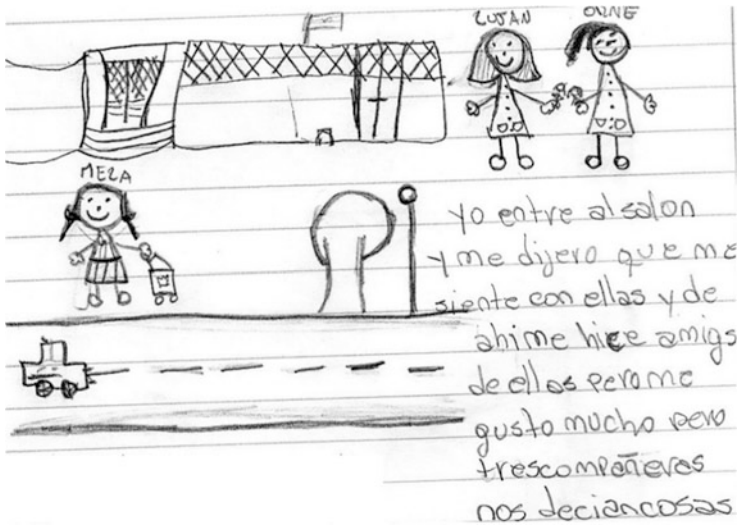 LUJAN
ORNE
MELA
yo entre al salon
y me dijero que me
siente con ellas y de
ahi me hice amigs
de ellas pero me
gusto mucho pero
tres compañeras
nos decian cosas